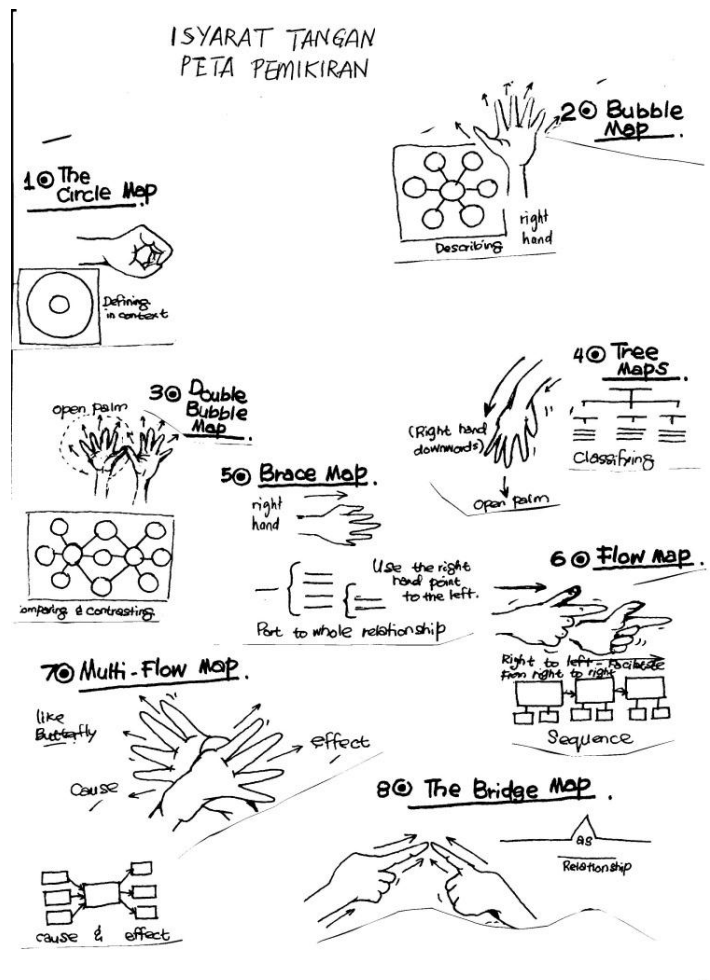 ISYARAT TANGAN
PETA PEMIKIRAN
1 The
Circle Map
Defining
in context
2 Bubble
Map.
Describing
right
hand
3 Double
Bubble
Map
open palm
omparing & contrasting
4 Tree
Maps.
(Right hand
downwords)
Open palm
Classifying
5 Brace Map.
right
hand
Use the right
hand point
to the left.
Part to whole relationship
6 Flow Map.
Right to left - Facibate
from right to right
Sequence
7 Multi-Flow Map.
like
Butterfly
Cause
effect
cause & effect
8 The Bridge Map.
as
Relationship